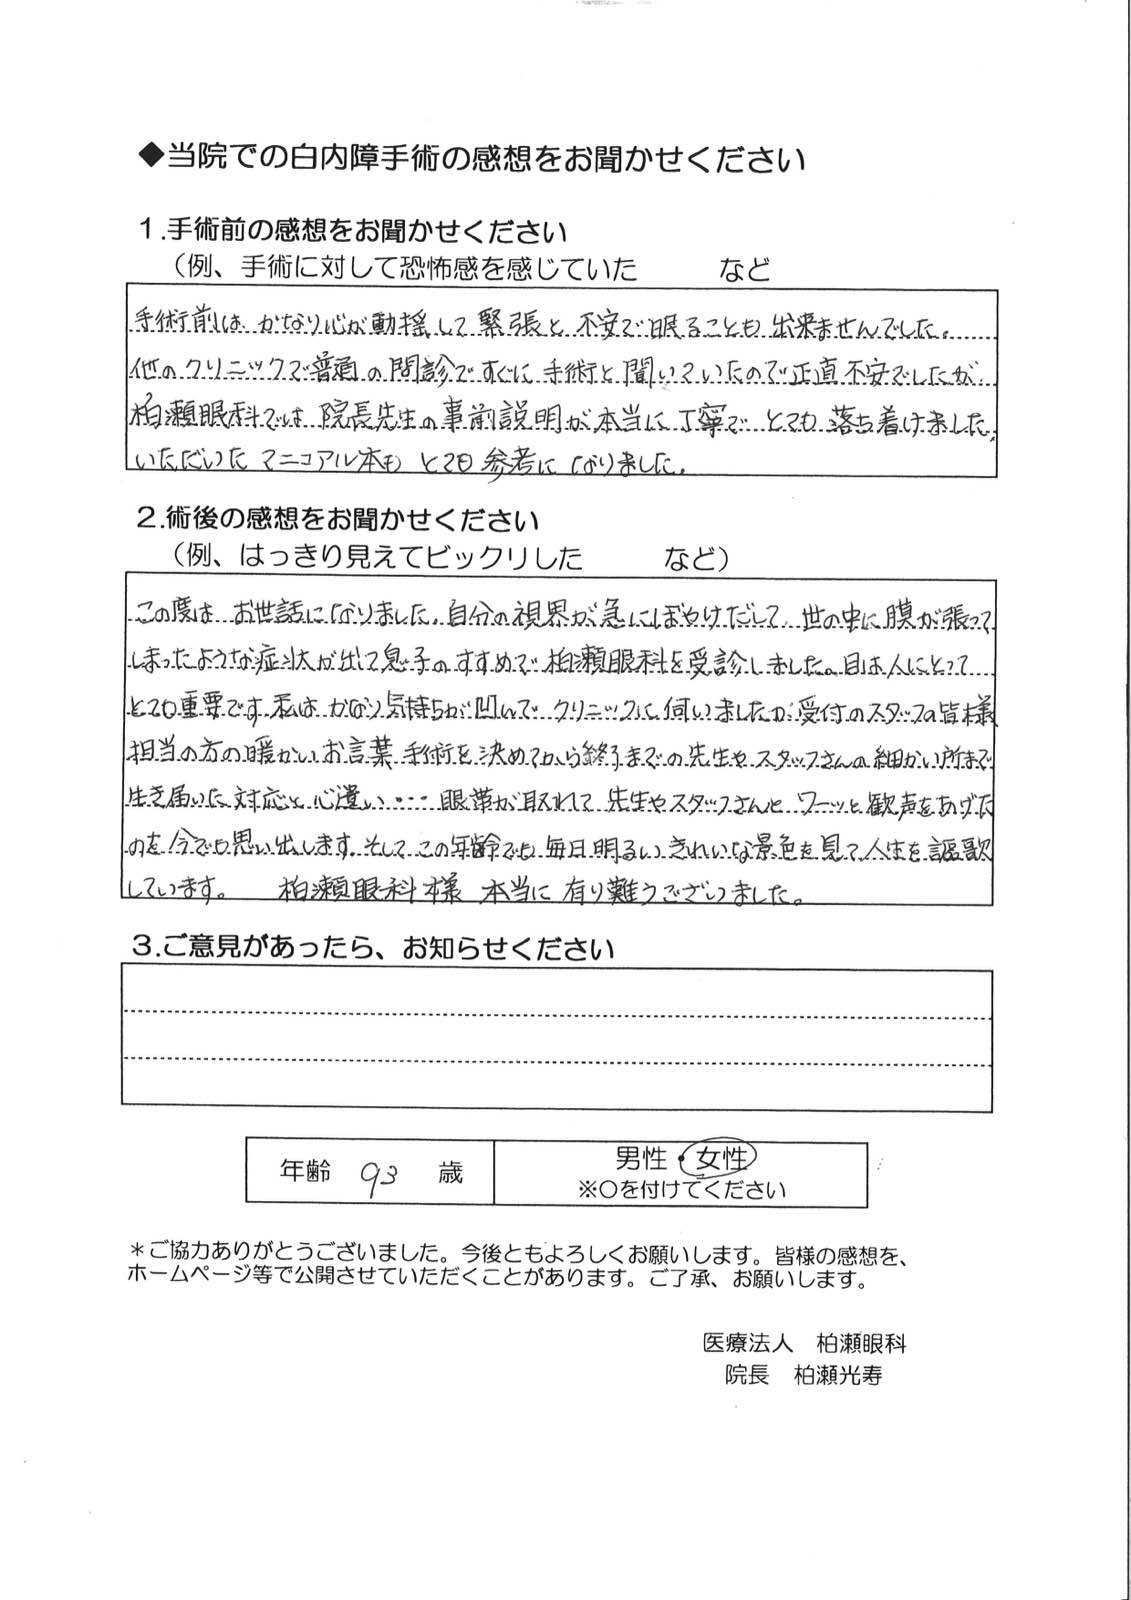 ◆当院での白内障手術の感想をお聞かせください
１.手術前の感想をお聞かせください
（例、手術に対して恐怖感を感じていた　　　など
手術前は かなり心が動揺して緊張と不安で眠ることも出来ませんでした。
他のクリニックで普通の問診ですぐに手術と聞いていたので正直不安でしたが
柏瀬眼科では院長先生の事前説明が本当に丁寧で とても落ち着けました。
いただいた マニュアル本も とても参考になりました。
２.術後の感想をお聞かせください
（例、はっきり見えてビックリした　　　など）
この度は お世話になりました。自分の視界が急にぼやけだして、世の中に膜が張って
しまったような症状が出て息子のすすめで柏瀬眼科を受診しました。目は人にとって
とても重要です。私は かなり気持ちが凹んで クリニックに伺いましたが受付のスタッフの皆様
担当の方の暖かいお言葉 手術を決めてから終了までの先生やスタッフさんの細かい所まで
生き届いた対応と心遣い・・・眼帯が取れて先生やスタッフさんと ワーッと歓声をあげた
のを今でも思い出します。そして この年齢でも毎日明るいきれいな景色を見て人生を謳歌
しています。　柏瀬眼科様 本当に有り難うございました。
３.ご意見があったら、お知らせください
年齢 93 歳
男性・女性
※〇を付けてください
＊ご協力ありがとうございました。今後ともよろしくお願いします。皆様の感想を、
ホームページ等で公開させていただくことがあります。ご了承、お願いします。
医療法人　柏瀬眼科
院長　柏瀬光寿